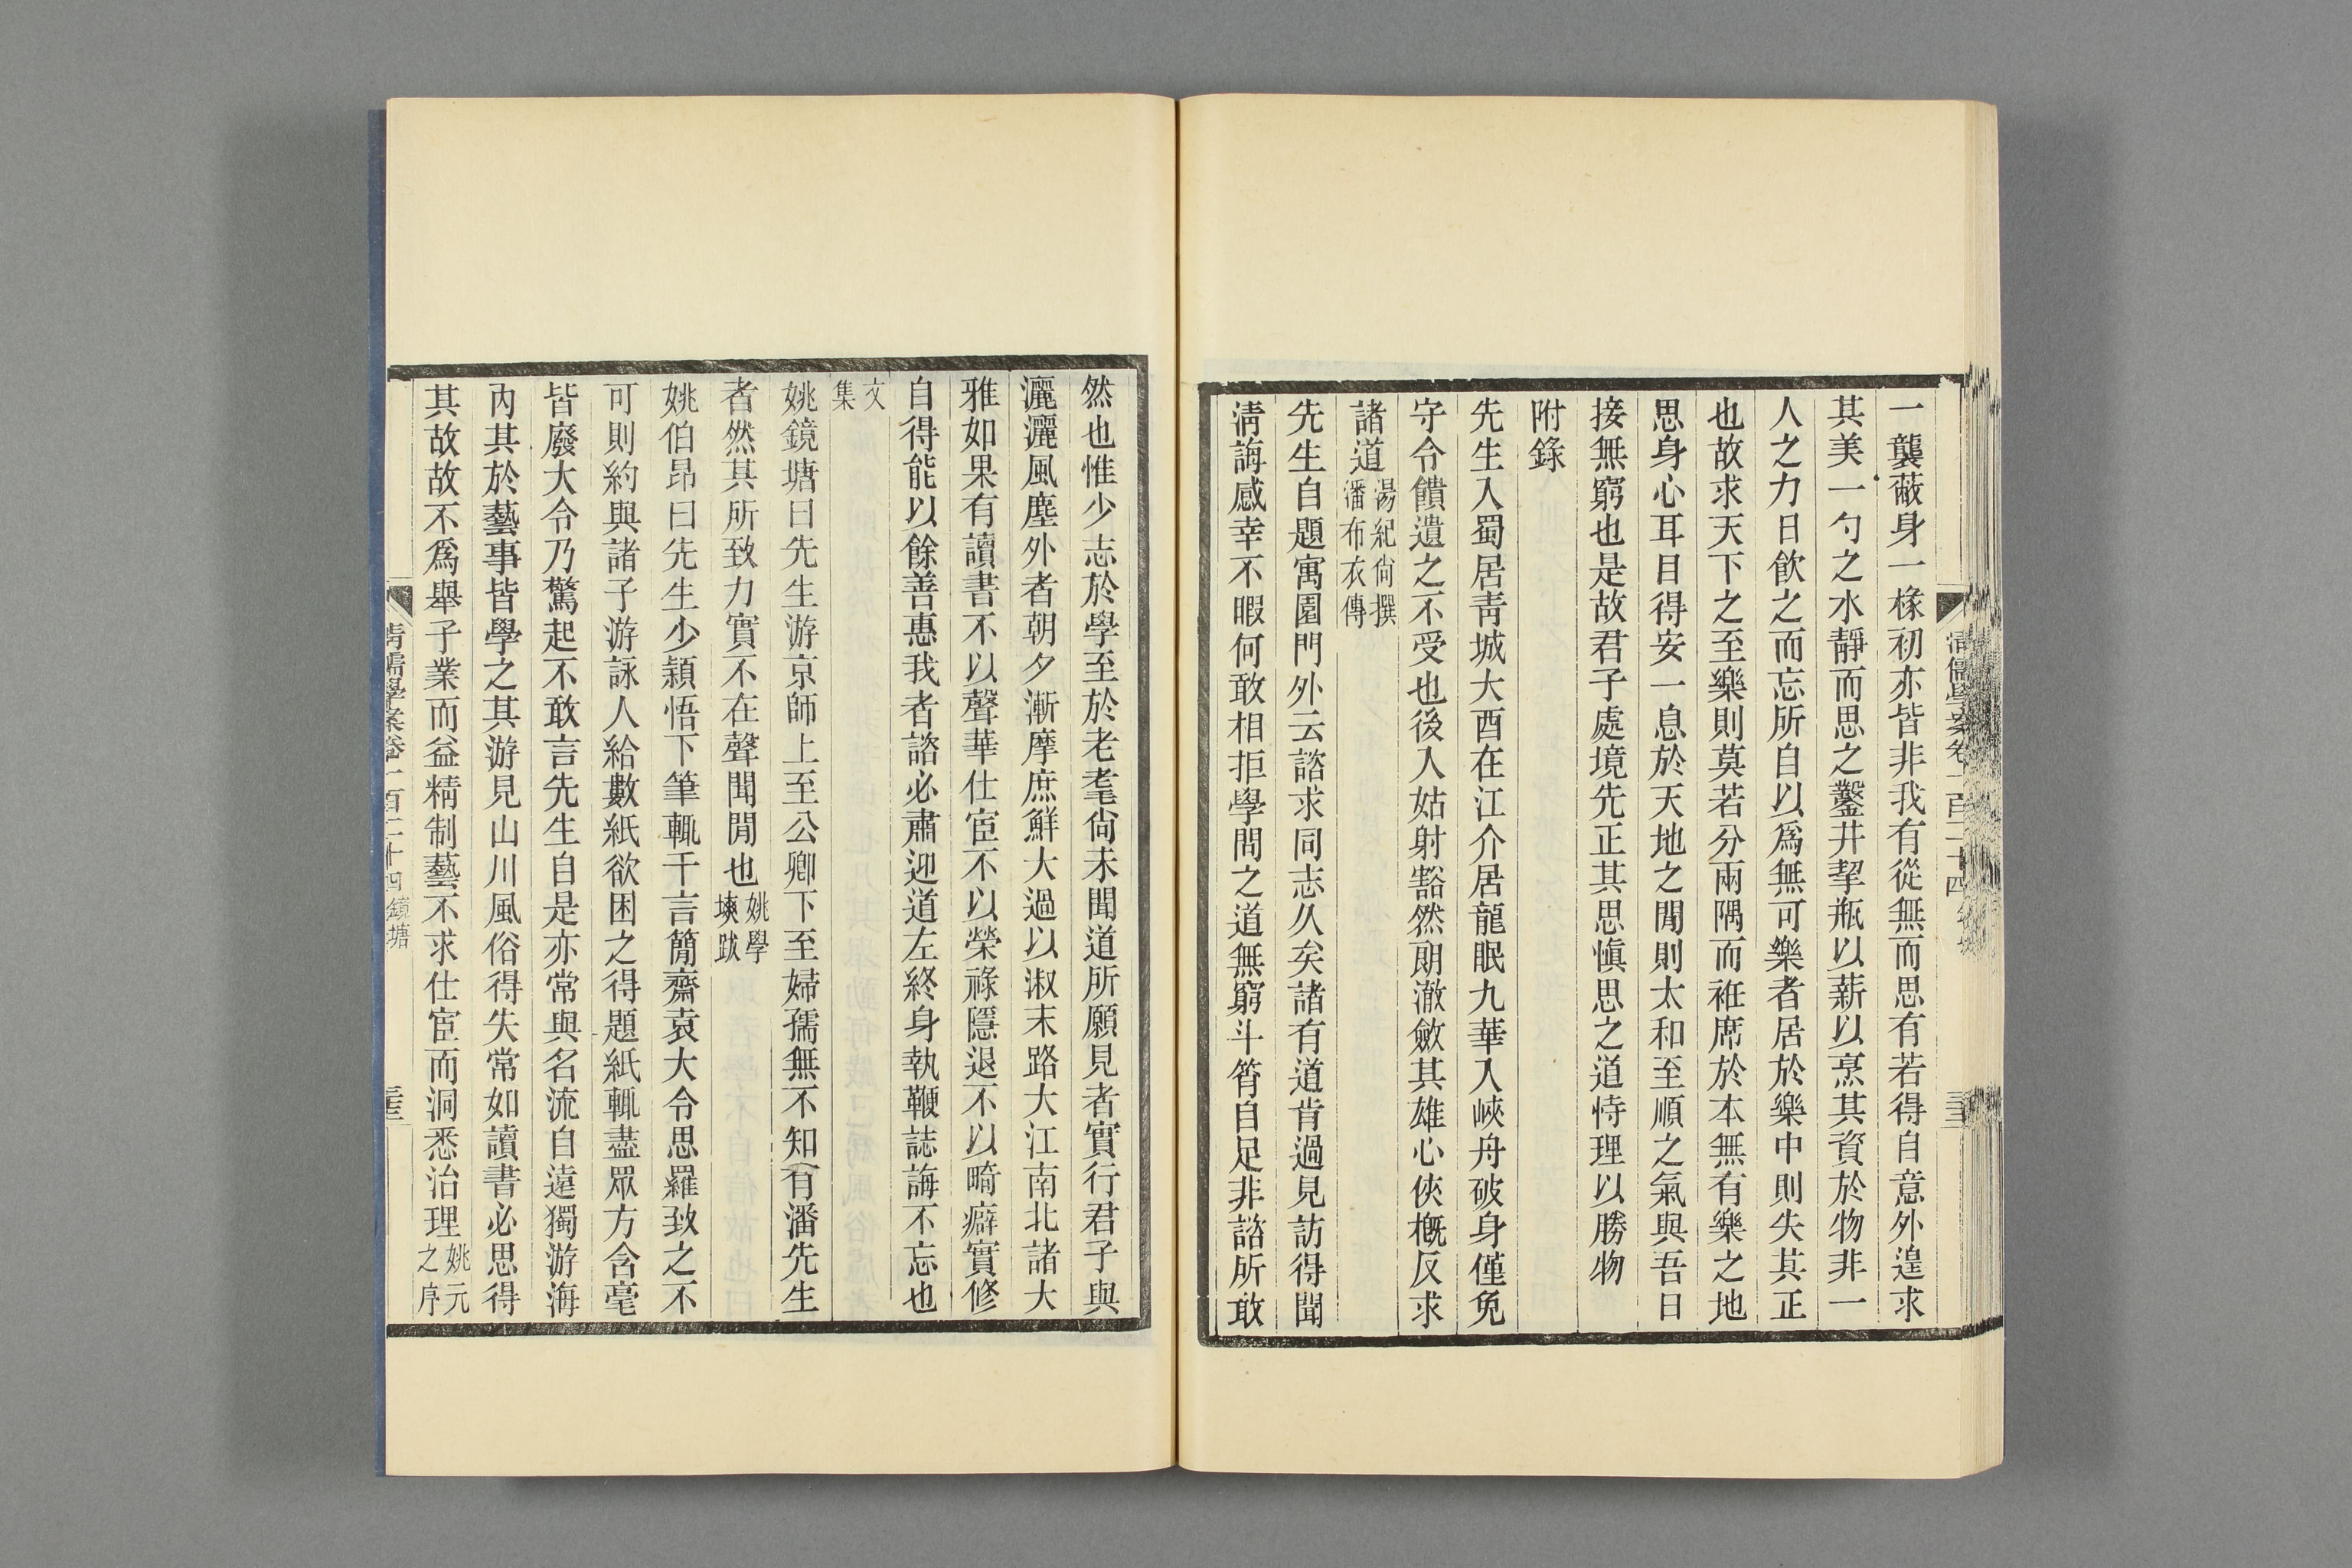 一襲蔽身一椽初亦皆非我有從無而思有若得自意外遑求
其美一勺之水靜而思之鑿井挈瓶以薪以烹其資於物非一
人之力日飲之而忘所自以爲無可樂者居於樂中則失其正
也故求天下之至樂則莫若分兩隅而袵席於本無有樂之地
思身心耳目得安一息於天地之閒則太和至順之氣與吾日
接無窮也是故君子處境先正其思愼思之道恃理以勝物
附錄
先生入蜀居靑城大酉在江介居龍眠九華入峽舟破身僅免
守令饋遺之不受也後入姑射豁然朗澈斂其雄心俠概反求
諸道湯紀尙撰潘布衣傳
先生自題寓園門外云諮求同志久矣諸有道肯過見訪得聞
淸誨感幸不暇何敢相拒學問之道無窮斗筲自足非諮所敢
然也惟少志於學至於老耄尙未聞道所願見者實行君子與
灑灑風塵外者朝夕漸摩庶鮮大過以淑末路大江南北諸大
雅如果有讀書不以聲華仕宦不以榮祿隱退不以畸癖實修
自得能以餘善惠我者諮必肅迎道左終身執鞭誌誨不忘也
文集
姚鏡塘曰先生游京師上至公卿下至婦孺無不知有潘先生
者然其所致力實不在聲聞閒也姚學塽跋
姚伯昂曰先生少穎悟下筆輒千言簡齋袁大令思羅致之不
可則約與諸子游詠人給數紙欲困之得題紙輒盡眾方含毫
皆廢大令乃驚起不敢言先生自是亦常與名流自遠獨游海
內其於藝事皆學之其游見山川風俗得失常如讀書必思得
其故故不爲舉子業而益精制藝不求仕宦而洞悉治理姚元之序
淸儒學案卷一百二十四 鏡塘